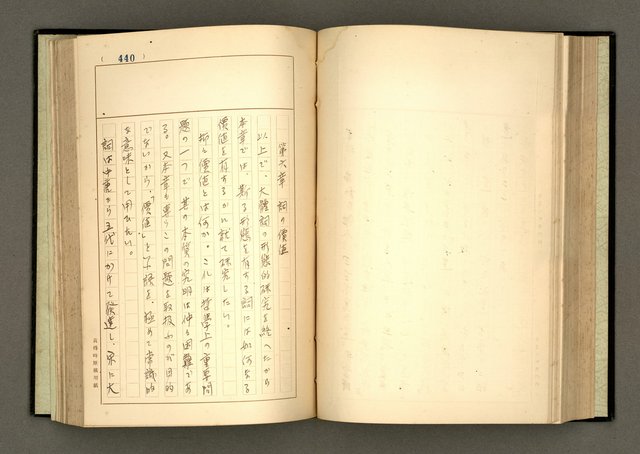 ( 440 )
第六章 詞の價値
以上で、大體詞の形態的研究を終へたから
本章では、斯る形態を有する詞には如何なる
價値を有するかに就て研究したい。
抑々價値とは何か。これは哲學上の重要問
題の一つで其の本質の究明は仲々困難であ
る。又本章も專らこの問題を取扱ふのが目的
でないから、「價値」と云ふ語を、極めて常識的
な意味として用ひたい。
詞は中唐から五代にかけて發達し、宋に大
原稿用紙